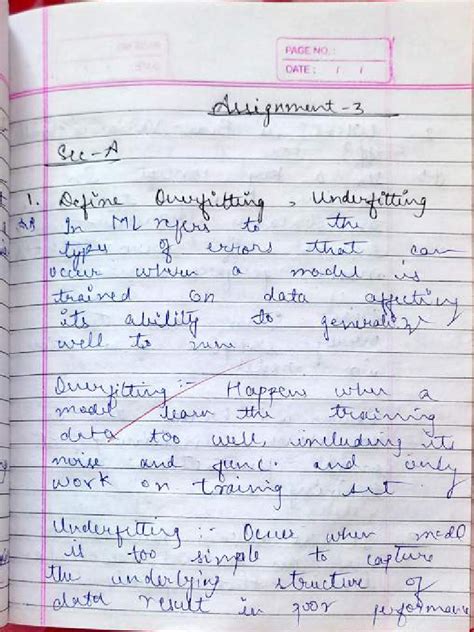 PAGE NO.:
DATE: / /
Assignment-3
Sec-A
1. Define Overfitting, Underfitting
In ML refers to the
types of errors that can
occur when a model is
trained on data affecting
its ability to generalize
well to
Overfitting :- Happens when a
model learn the training
data too well, including its
noise and func. and only
work on training set
Underfitting :- Occus when model
is too simple to capture
the underlying structure of
data result in poor performance